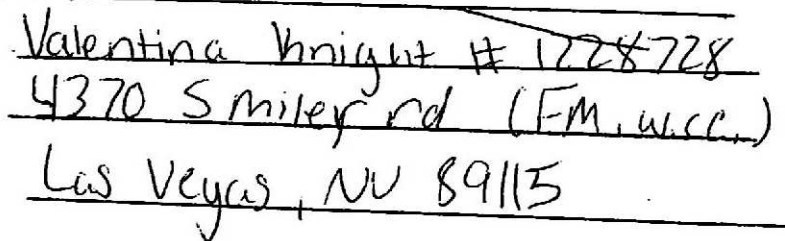 Valentina Knight # 1228728
4370 Smiley rd (F.M.W.C.C.)
Las Vegas, NV 89115